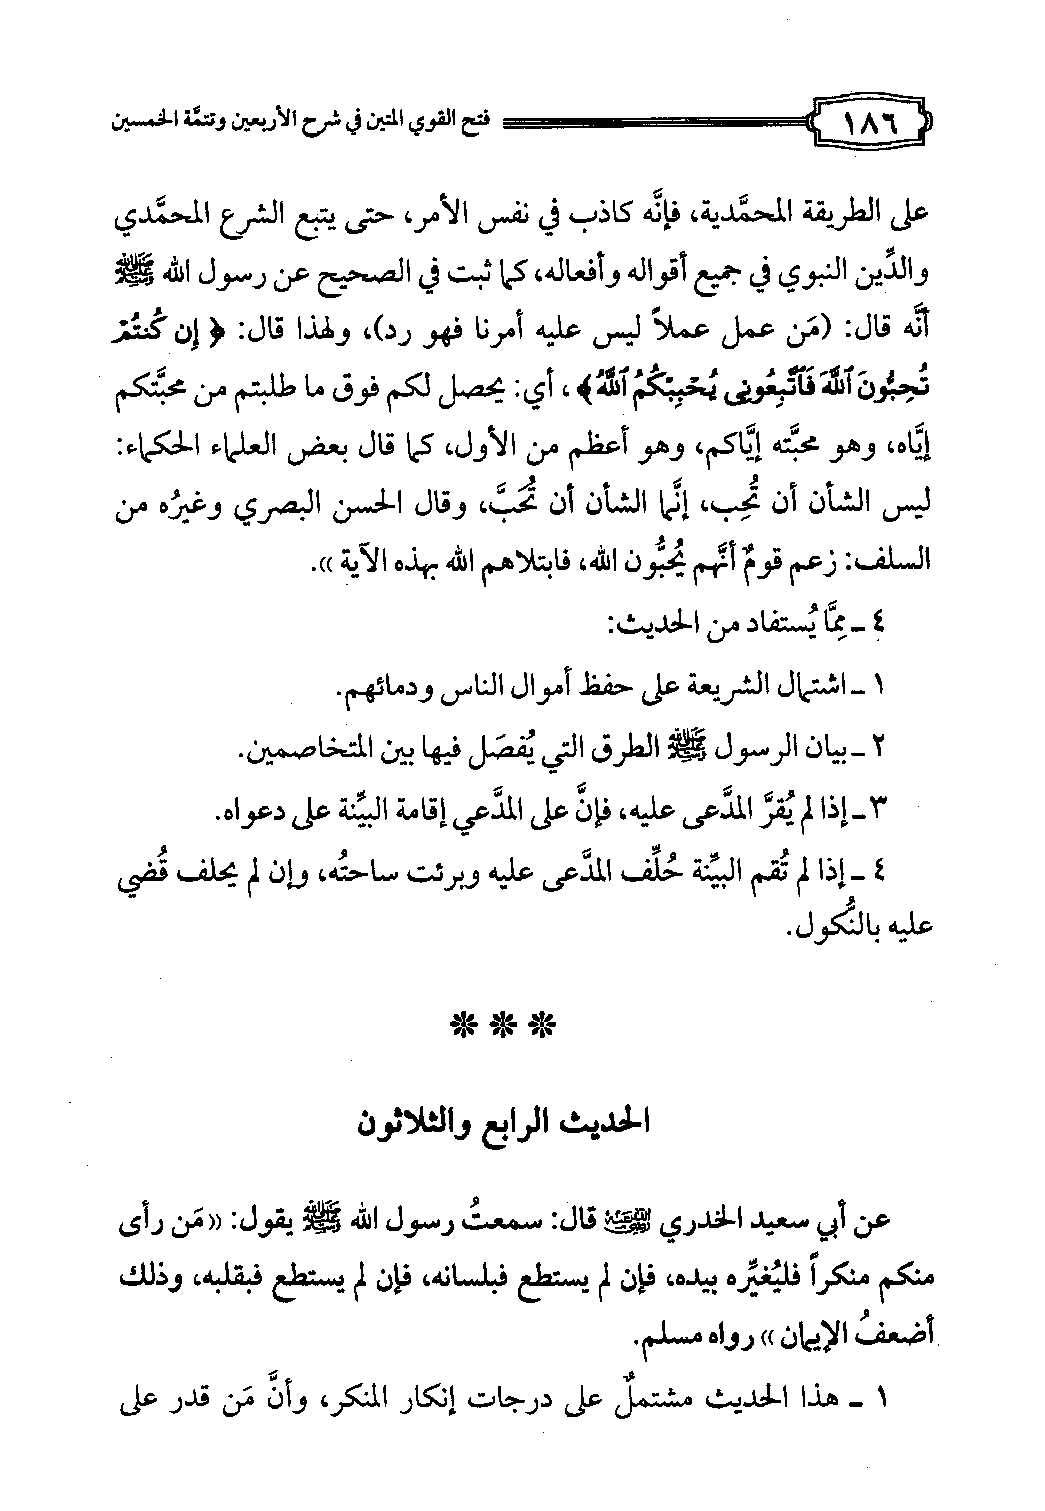 ١٨٦ فتح القوي المتين في شرح الأربعين وتتمَّة الخمسين
على الطريقة المحمَّدية، فإنَّه كاذب في نفس الأمر، حتى يتبع الشرع المحمَّدي
والدِّين النبوي في جميع أقواله وأفعاله، كما ثبت في الصحيح عن رسول الله ﷺ
أنَّه قال: (مَن عمل عملاً ليس عليه أمرنا فهو رد)، ولهذا قال: ﴿ إِن كُنتُمْ
تُحِبُّونَ ٱللَّهَ فَٱتَّبِعُونِي يُحْبِبْكُمُ ٱللَّهُ﴾، أي: يحصل لكم فوق ما طلبتم من محبَّتكم
إيَّاه، وهو محبَّته إيَّاكم، وهو أعظم من الأول، كما قال بعض العلماء الحكماء:
ليس الشأن أن تُحِب، إنَّما الشأن أن تُحَبَّ، وقال الحسن البصري وغيرُه من
السلف: زعم قومٌ أنَّهم يُحبُّون الله، فابتلاهم الله بهذه الآية )).
٤ ـ مِمَّا يُستفاد من الحديث:
١ ـ اشتمال الشريعة على حفظ أموال الناس ودمائهم.
٢ ـ بيان الرسول ﷺ الطرق التي يُفصَل فيها بين المتخاصمين.
٣ ـ إذا لم يُقرَّ المدَّعى عليه، فإنَّ على المدَّعي إقامة البيِّنة على دعواه.
٤ ـ إذا لم تُقم البيِّنة حُلِّف المدَّعى عليه وبرئت ساحتُه، وإن لم يحلف قُضي
عليه بالنُّكول.
* * *
الحديث الرابع والثلاثون
عن أبي سعيد الخدري رضي الله عنه قال: سمعتُ رسول الله ﷺ يقول: (( مَن رأى
منكم منكراً فليُغيِّره بيده، فإن لم يستطع فبلسانه، فإن لم يستطع فبقلبه، وذلك
أضعفُ الإيمان )) رواه مسلم.
١ ـ هذا الحديث مشتملٌ على درجات إنكار المنكر، وأنَّ مَن قدر على